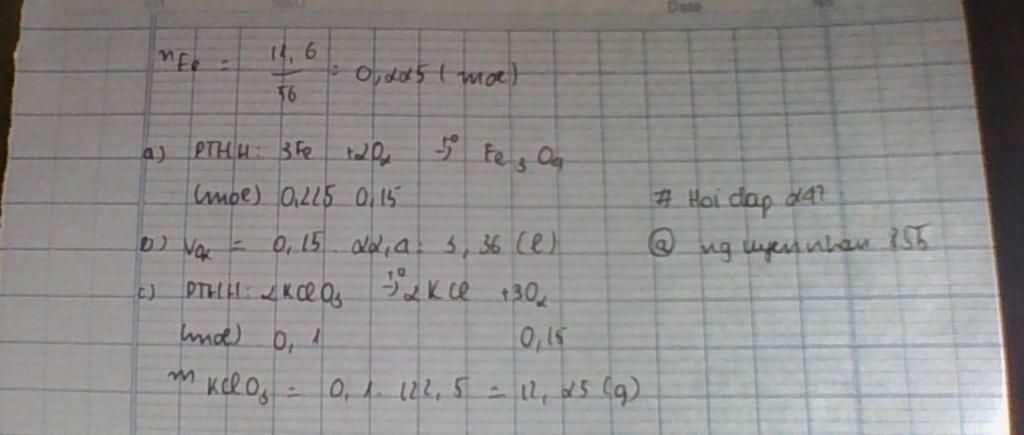 Date No
nFe = 12,6 / 56 = 0,225 (mol)
a) PTHH: 3Fe + 2O2 -t°-> Fe3O4
(mol) 0,225 0,15
# Hoidap247
b) VO2 = 0,15 . 22,4 = 3,36 (l)
@ nguyennhan855
c) PTHH: 2KClO3 -t°-> 2KCl + 3O2
(mol) 0,1 0,15
mKClO3 = 0,1 . 122,5 = 12,25 (g)